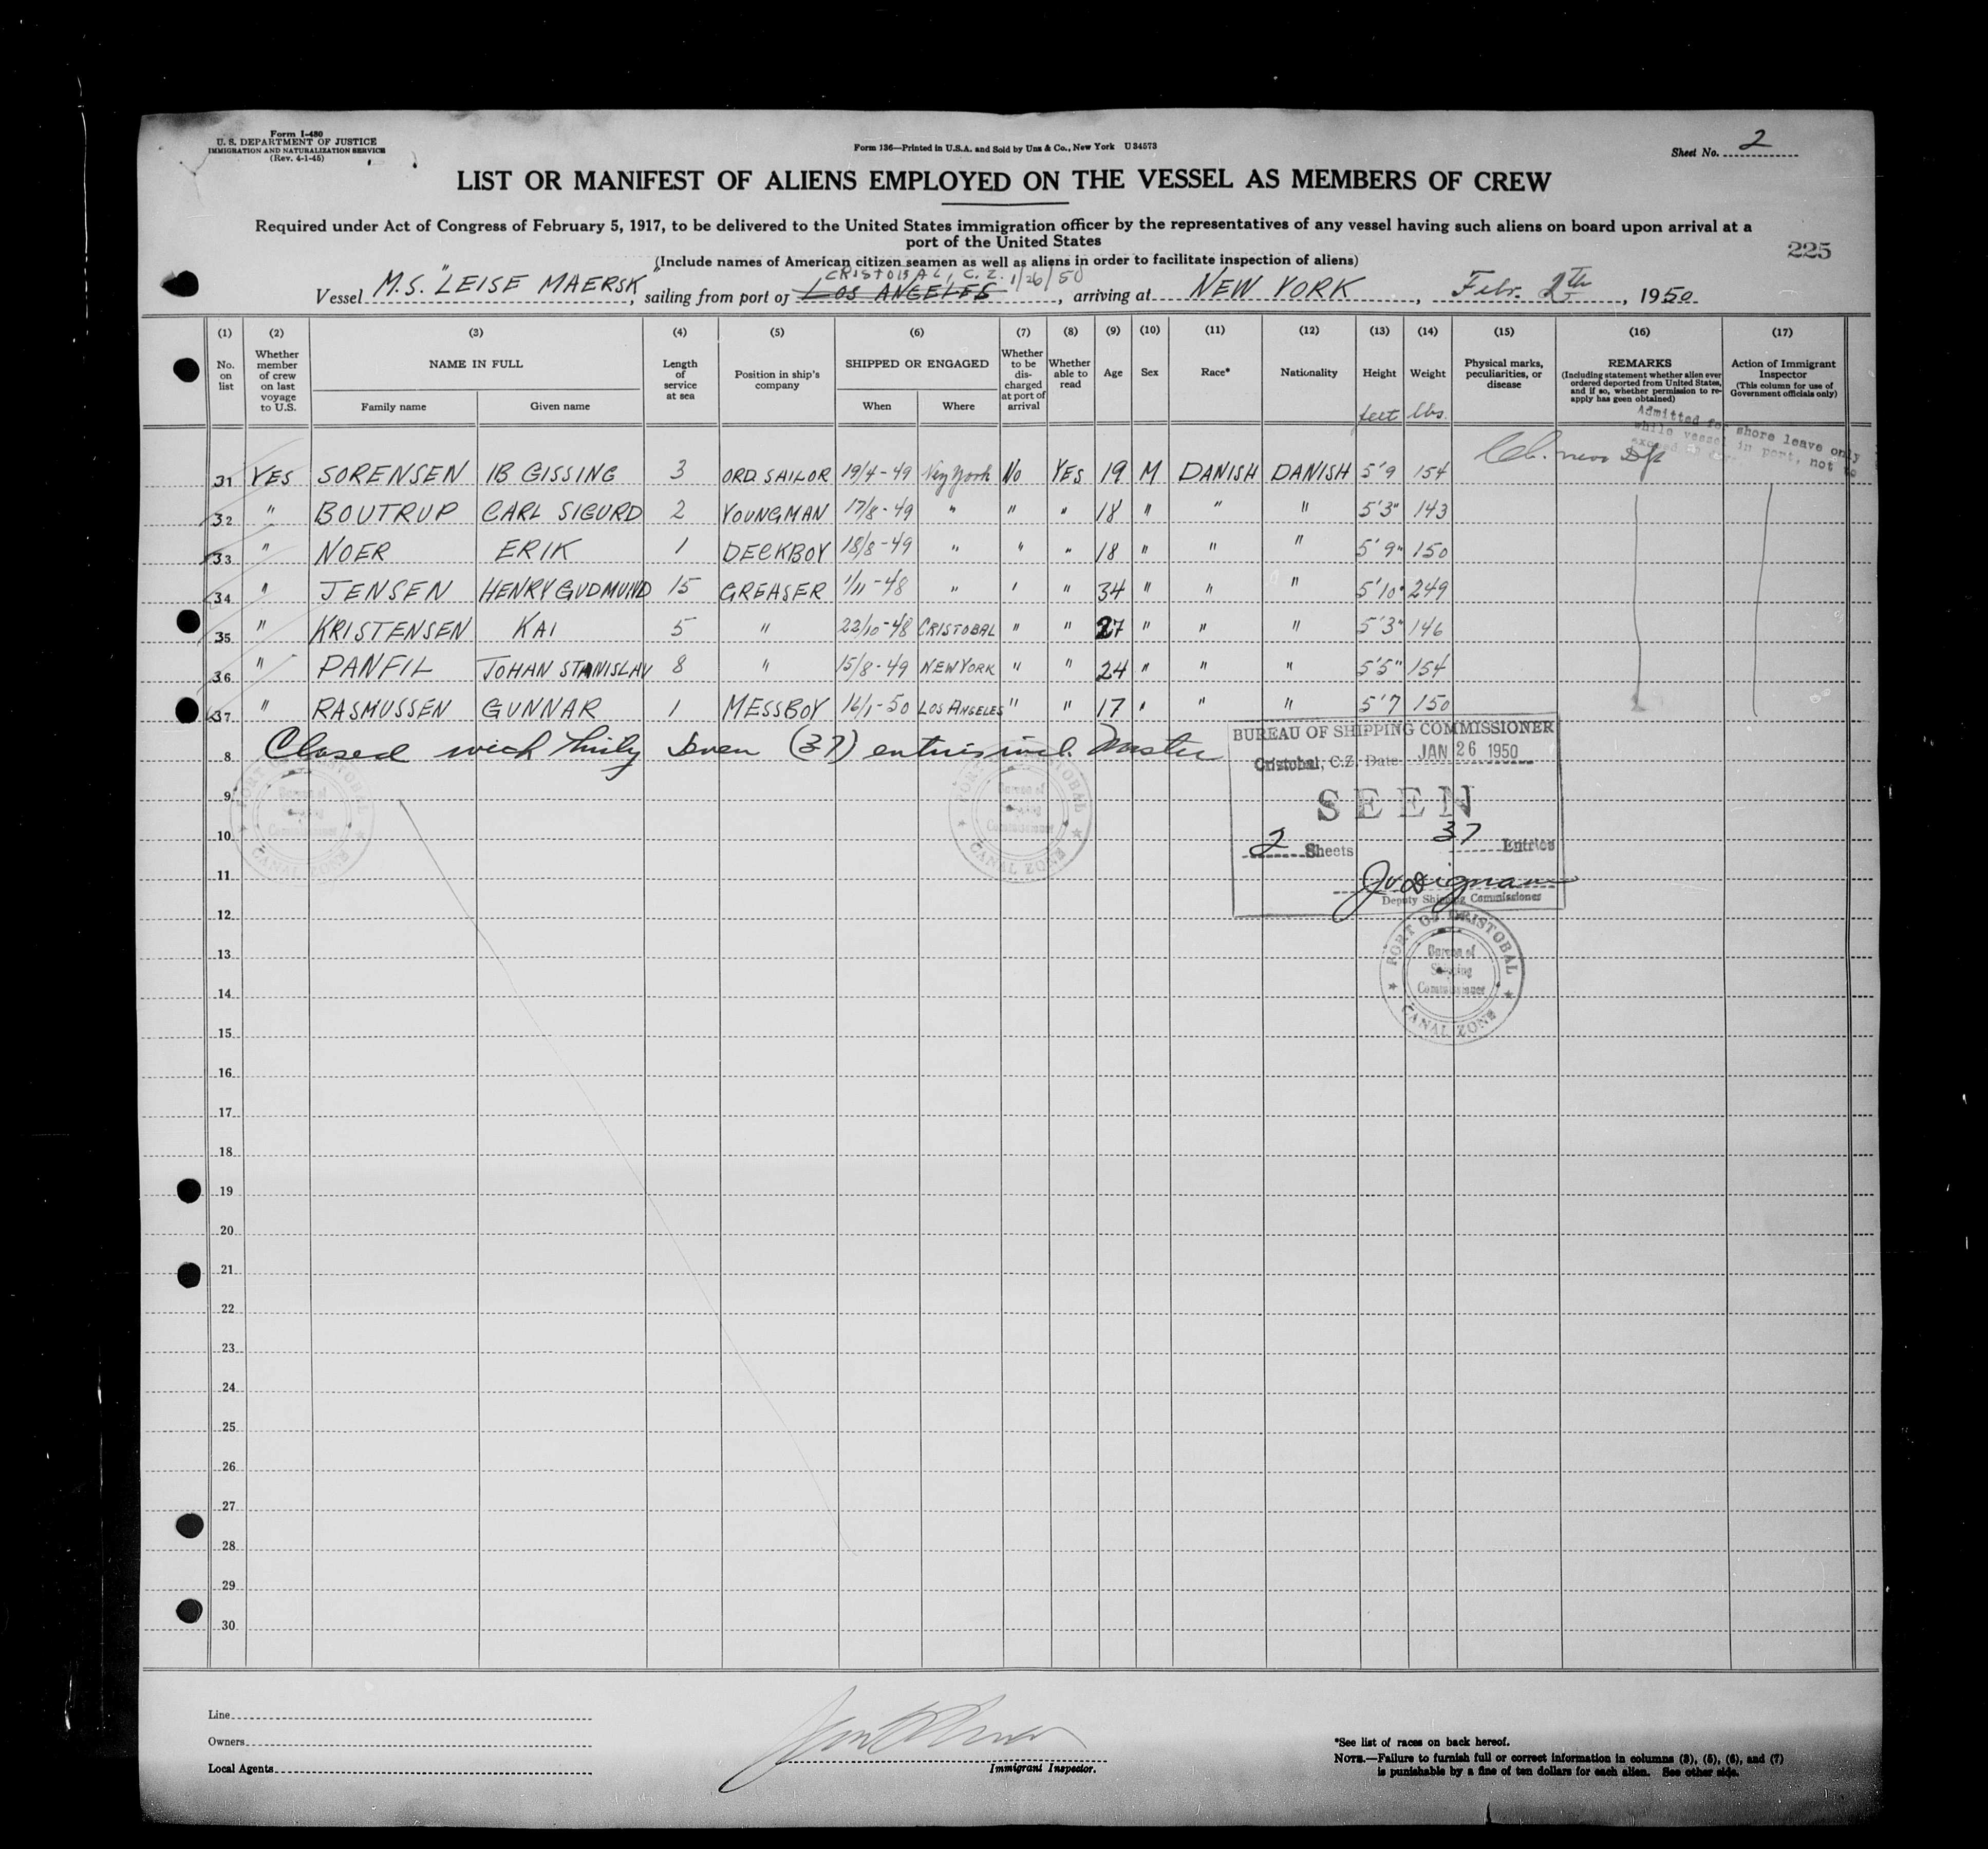 Form I-480
U. S. DEPARTMENT OF JUSTICE
IMMIGRATION AND NATURALIZATION SERVICE
(Rev. 4-1-45)
Form 136—Printed in U.S.A. and Sold by Unz & Co., New York U 34573
Sheet No. 2
LIST OR MANIFEST OF ALIENS EMPLOYED ON THE VESSEL AS MEMBERS OF CREW
Required under Act of Congress of February 5, 1917, to be delivered to the United States immigration officer by the representatives of any vessel having such aliens on board upon arrival at a
port of the United States
225
(Include names of American citizen seamen as well as aliens in order to facilitate inspection of aliens)
CRISTOBAL, C. Z. 1/26/50
Vessel M.S. "LEISE MAERSK", sailing from port of LOS ANGELES, arriving at NEW YORK, Febr. 2th, 1950
(1) (2) (3) (4) (5) (6) (7) (8) (9) (10) (11) (12) (13) (14) (15) (16) (17)
No. on list
Whether member of crew on last voyage to U.S.
NAME IN FULL
Family name
Given name
Length of service at sea
Position in ship's company
SHIPPED OR ENGAGED
When
Where
Whether to be discharged at port of arrival
Whether able to read
Age
Sex
Race*
Nationality
Height
feet
Weight
lbs.
Physical marks, peculiarities, or disease
REMARKS
(Including statement whether alien ever ordered deported from United States, and if so, whether permission to re-apply has been obtained)
Action of Immigrant Inspector
(This column for use of Government officials only)
Admitted for shore leave only
while vessel in port, not to
31 YES SORENSEN IB GISSING 3 ORD. SAILOR 19/4-49 New York No YES 19 M DANISH DANISH 5'9 154
32 " BOUTRUP CARL SIGURD 2 YOUNGMAN 17/8-49 " " " 18 " " " 5'3" 143
33 " NOER ERIK 1 DECKBOY 18/8-49 " " " 18 " " " 5'9" 150
34 " JENSEN HENRY GUDMUND 15 GREASER 1/11-48 " " " 34 " " " 5'10" 249
35 " KRISTENSEN KAI 5 " 22/10-48 CRISTOBAL " " 27 " " " 5'3" 146
36 " PANFIL JOHAN STANISLAV 8 " 15/8-49 NEW YORK " " 24 " " " 5'5" 154
37 " RASMUSSEN GUNNAR 1 MESSBOY 16/1-50 LOS ANGELES " " 17 " " " 5'7 150
8 Closed with thirty seven (37) entries incl. Master
BUREAU OF SHIPPING COMMISSIONER
Cristobal, C.Z. Date JAN 26 1950
SEEN
2 Sheets 37 Entries
Deputy Shipping Commissioner
PORT OF CRISTOBAL
Bureau of
Shipping
Commissioner
CANAL ZONE
PORT OF CRISTOBAL
Bureau of
Shipping
Commissioner
CANAL ZONE
PORT OF CRISTOBAL
Bureau of
Shipping
Commissioner
CANAL ZONE
9
10
11
12
13
14
15
16
17
18
19
20
21
22
23
24
25
26
27
28
29
30
Line
Owners
Local Agents
Immigrant Inspector.
*See list of races on back hereof.
NOTE.—Failure to furnish full or correct information in columns (3), (5), (6), and (7)
is punishable by a fine of ten dollars for each alien. See other side.